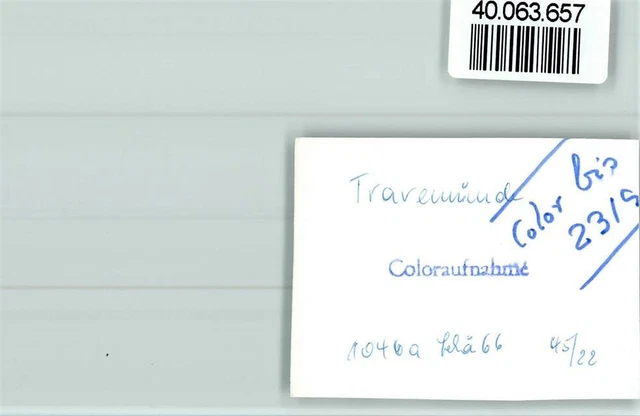 40.063.657
Travemünde
Color bis
23/9
Coloraufnahme
1046a
45/22